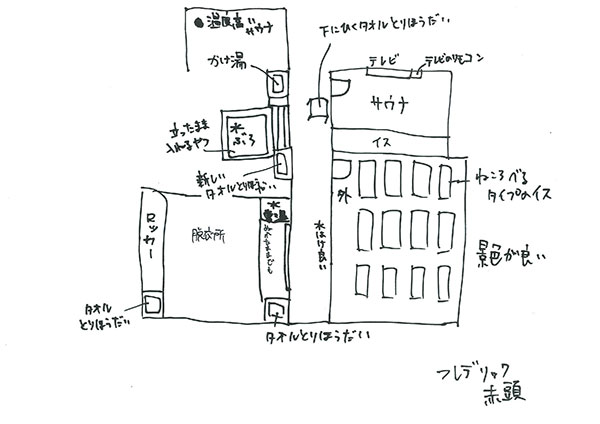 ●温度高い
サウナ
下にひくタオルとりほうだい
かけ湯
テレビ
テレビのリモコン
サウナ
立ったまま
入れるやつ
水
ぶろ
イス
新しい
タオルとりほうだい
外
ねころべる
タイプのイス
ロッカー
脱衣所
水
水はけ良い
景色が良い
タオル
とりほうだい
タオルとりほうだい
フレデリック
赤頭